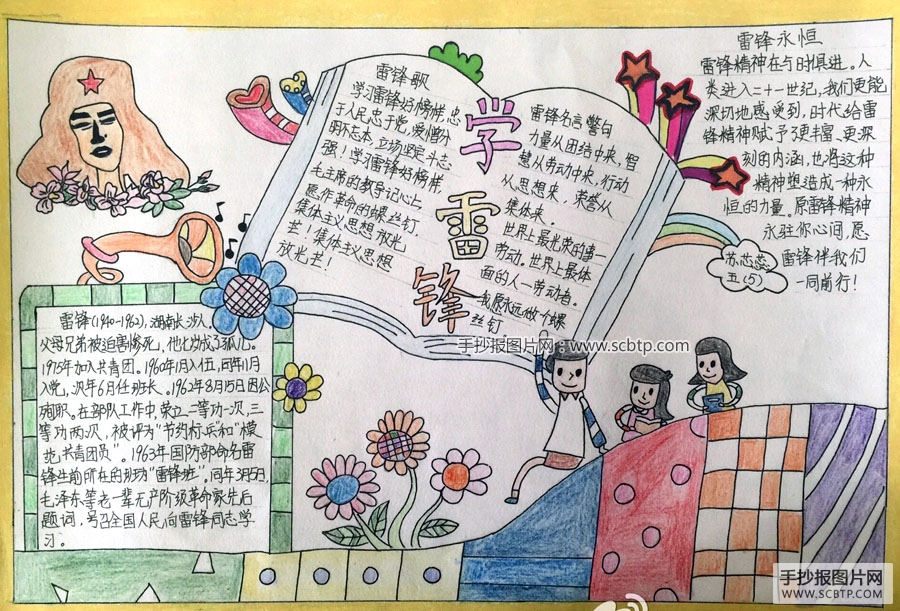 雷锋歌
学习雷锋好榜样,忠
于人民忠于党,爱憎分
明不忘本,立场坚定斗志
强!学习雷锋好榜样,
毛主席的教导记心上
愿作革命的螺丝钉,
集体主义思想放光
芒!集体主义思想
放光芒!
学
雷
锋
雷锋名言警句
力量从团结中来,智
慧从劳动中来,行动
从思想来,荣誉从
集体来.
世界上最光荣的事—
劳动。世界上最体
面的人—劳动者。
我愿永远做个螺
丝钉
雷锋永恒
雷锋精神在与时俱进。人
类进入二十一世纪,我们更能
深切地感受到,时代给雷
锋精神赋予了更丰富、更深
刻的内涵,也将这种
精神塑造成一种永
恒的力量。原雷锋精神
永驻你心间,愿
雷锋伴我们
一同前行!
苏芯蕊
五(5)
雷锋(1940-1962),湖南长沙人。
父母兄弟被迫害惨死,他七岁成了孤儿。
1975年加入共青团。1960年1月入伍,同年11月
入党,次年6月任班长。1962年8月15日因公
殉职。在部队工作中,荣立二等功一次,三
等功两次,被评为“节约标兵和“模
范共青团员”。1963年国防部命名雷
锋生前所在的班为“雷锋班”。同年3月5日,
毛泽东等老一辈无产阶级革命家先后
题词,号召全国人民向雷锋同志学
习。
手抄报图片网:www.scbtp.com
手抄报图片网
WWW.SCBTP.COM